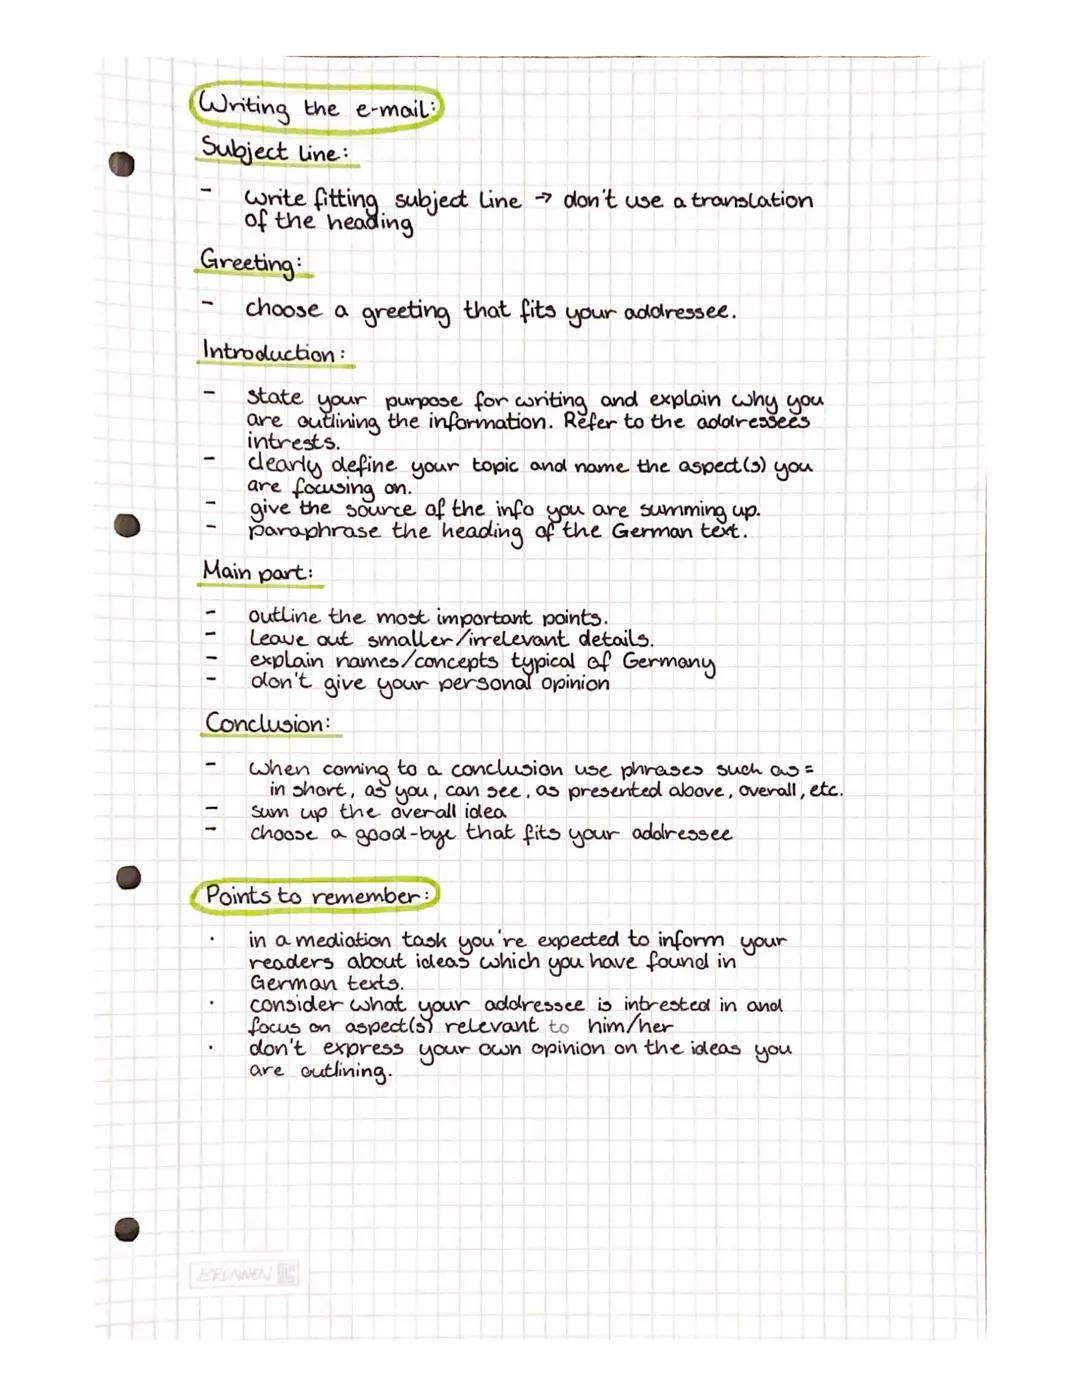 Writing the e-mail:
Subject line:
- write fitting subject line → don't use a translation
of the heading
Greeting:
- choose a greeting that fits your addressee.
Introduction:
- state your purpose for writing and explain why you
are outlining the information. Refer to the addressees
intrests.
- clearly define your topic and name the aspect(s) you
are focusing on.
- give the source of the info you are summing up.
- paraphrase the heading of the German text.
Main part:
- outline the most important points.
- leave out smaller/irrelevant details.
- explain names/concepts typical of Germany
- don't give your personal opinion
Conclusion:
- when coming to a conclusion use phrases such as =
in short, as you, can see, as presented above, overall, etc.
- sum up the overall idea
- choose a good-bye that fits your addressee
Points to remember:
· in a mediation task you're expected to inform your
readers about ideas which you have found in
German texts.
· consider what your addressee is intrested in and
focus on aspect(s) relevant to him/her
· don't express your own opinion on the ideas you
are outlining.
BRUNNEN